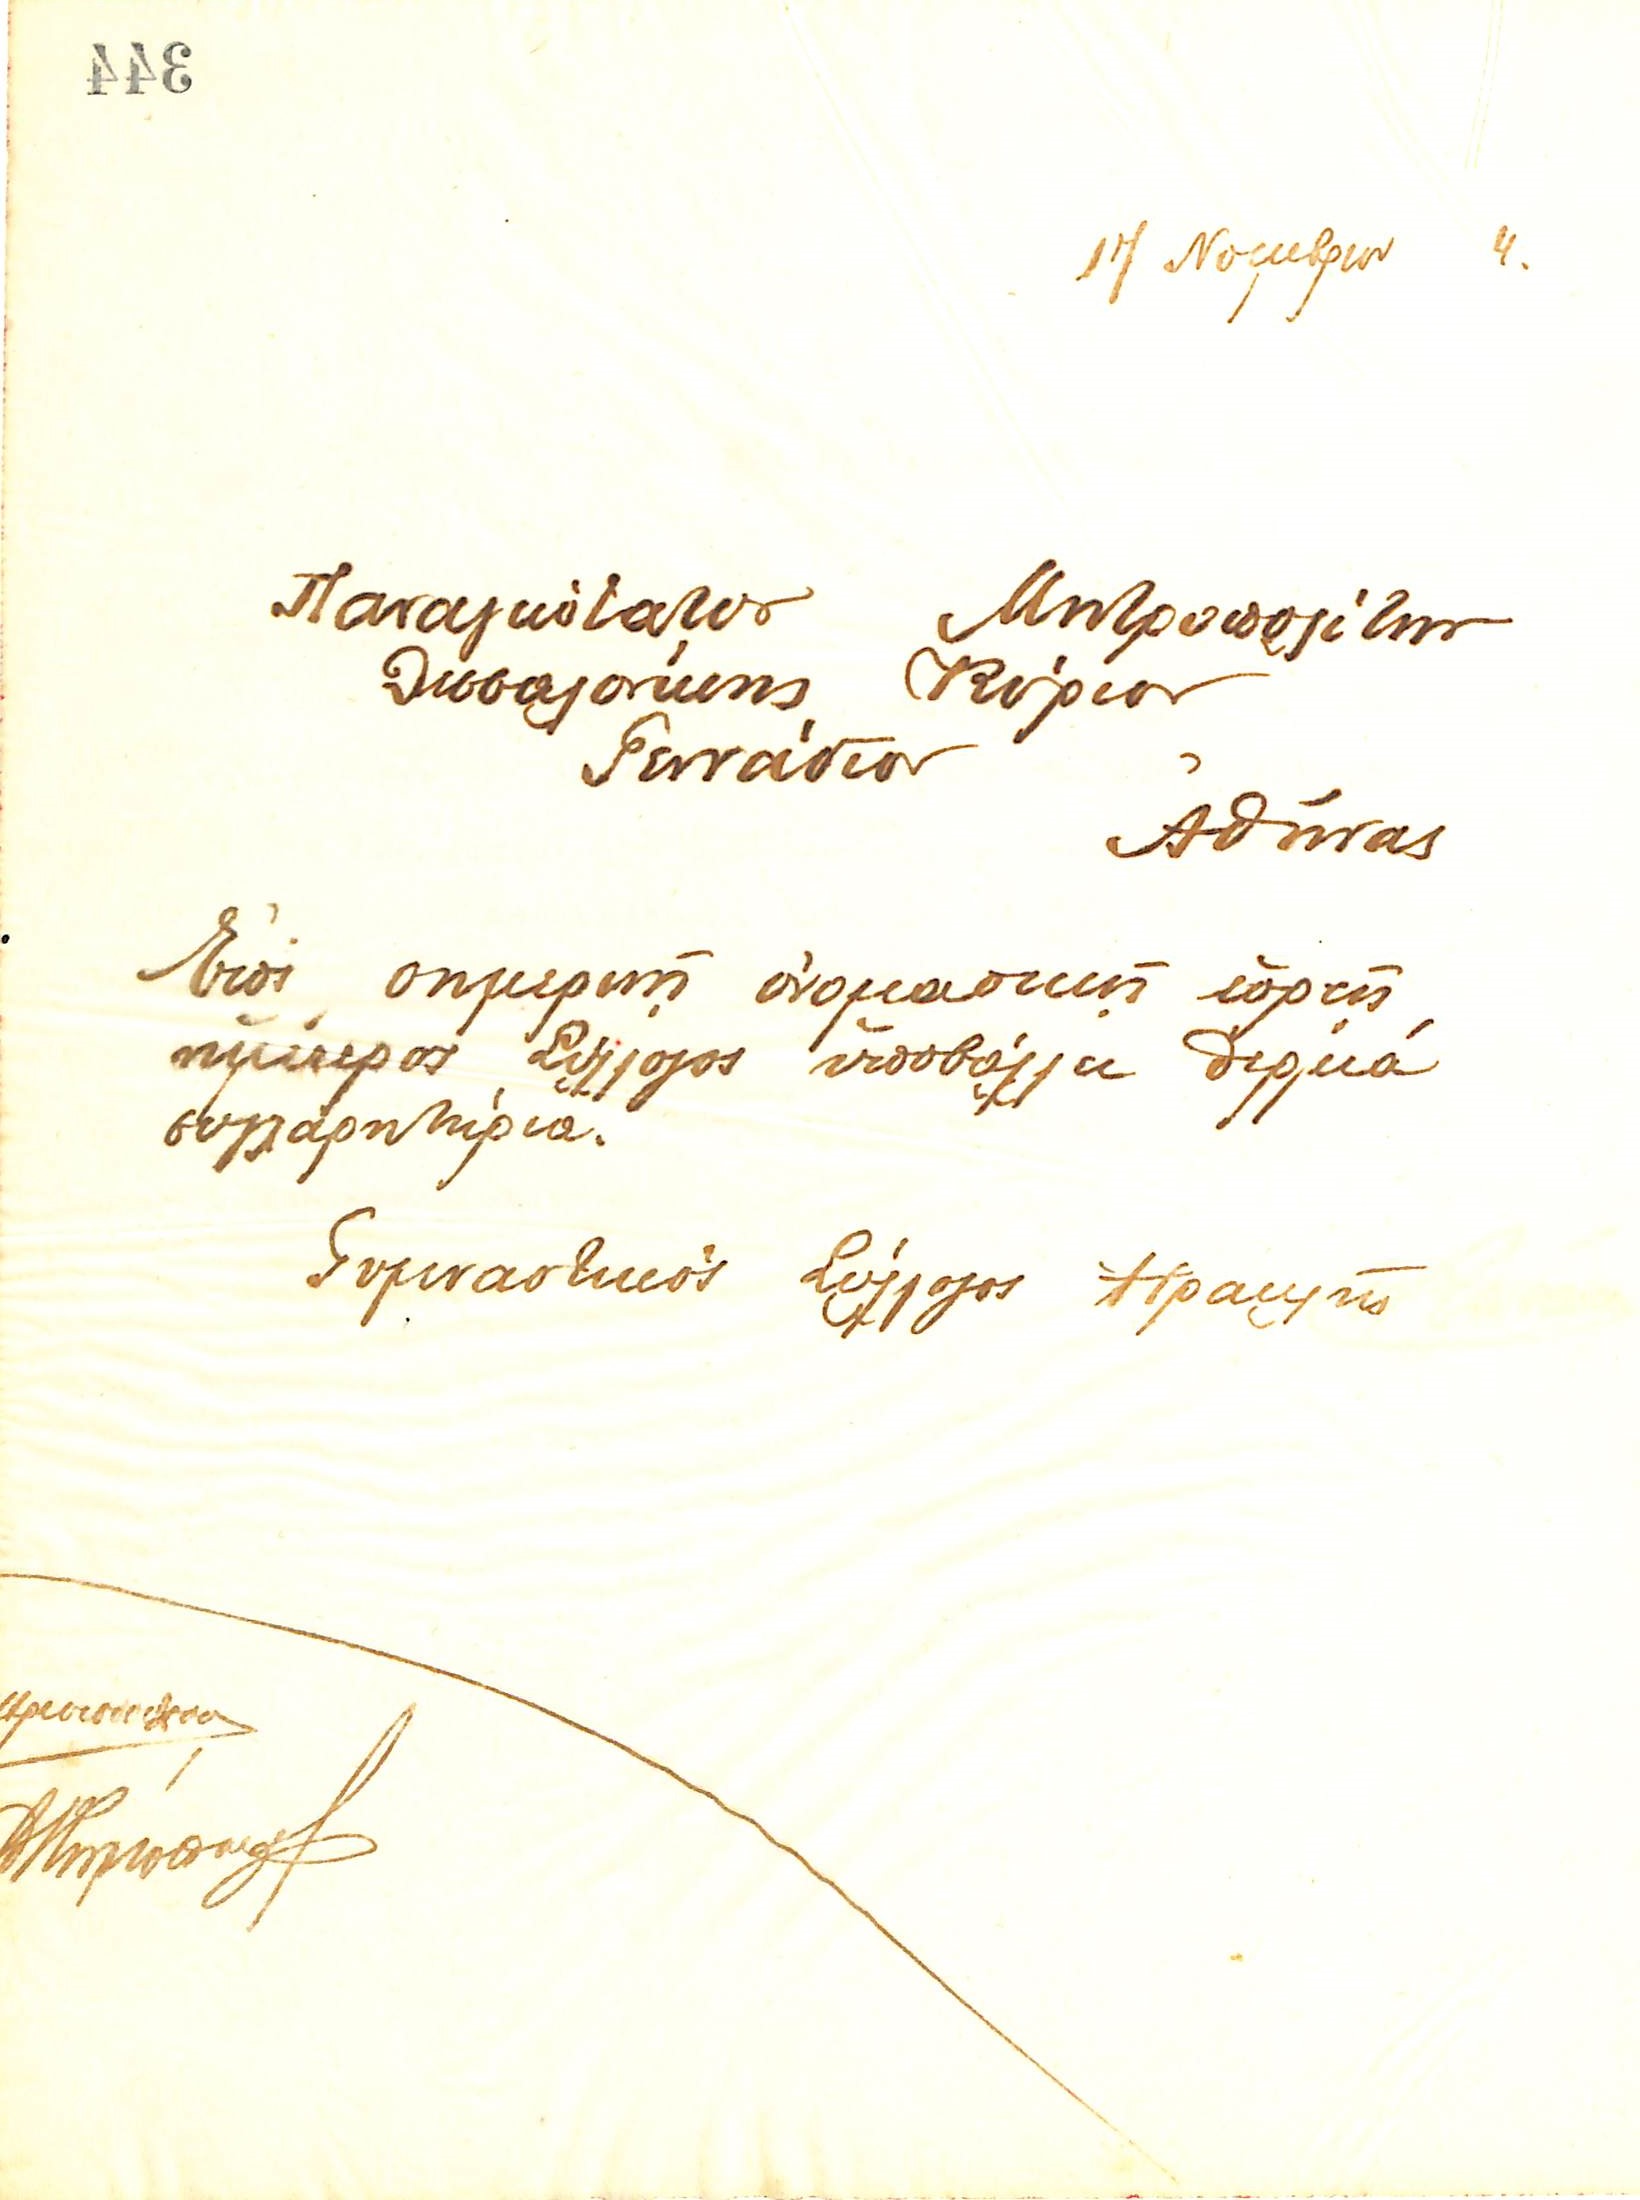 344
17 Νοεμβρίου 4.
Παναγιώτατον Μητροπολίτην
Θεσσαλονίκης Κύριον
Γεννάδιον
Ἀθήνας
Ἐπὶ σημερινῇ ὀνομαστικῇ ἑορτῇ
ἡμέτερος Σύλλογος ὑποβάλλει θερμά
συγχαρητήρια.
Γυμναστικός Σύλλογος Ἡρακλῆς